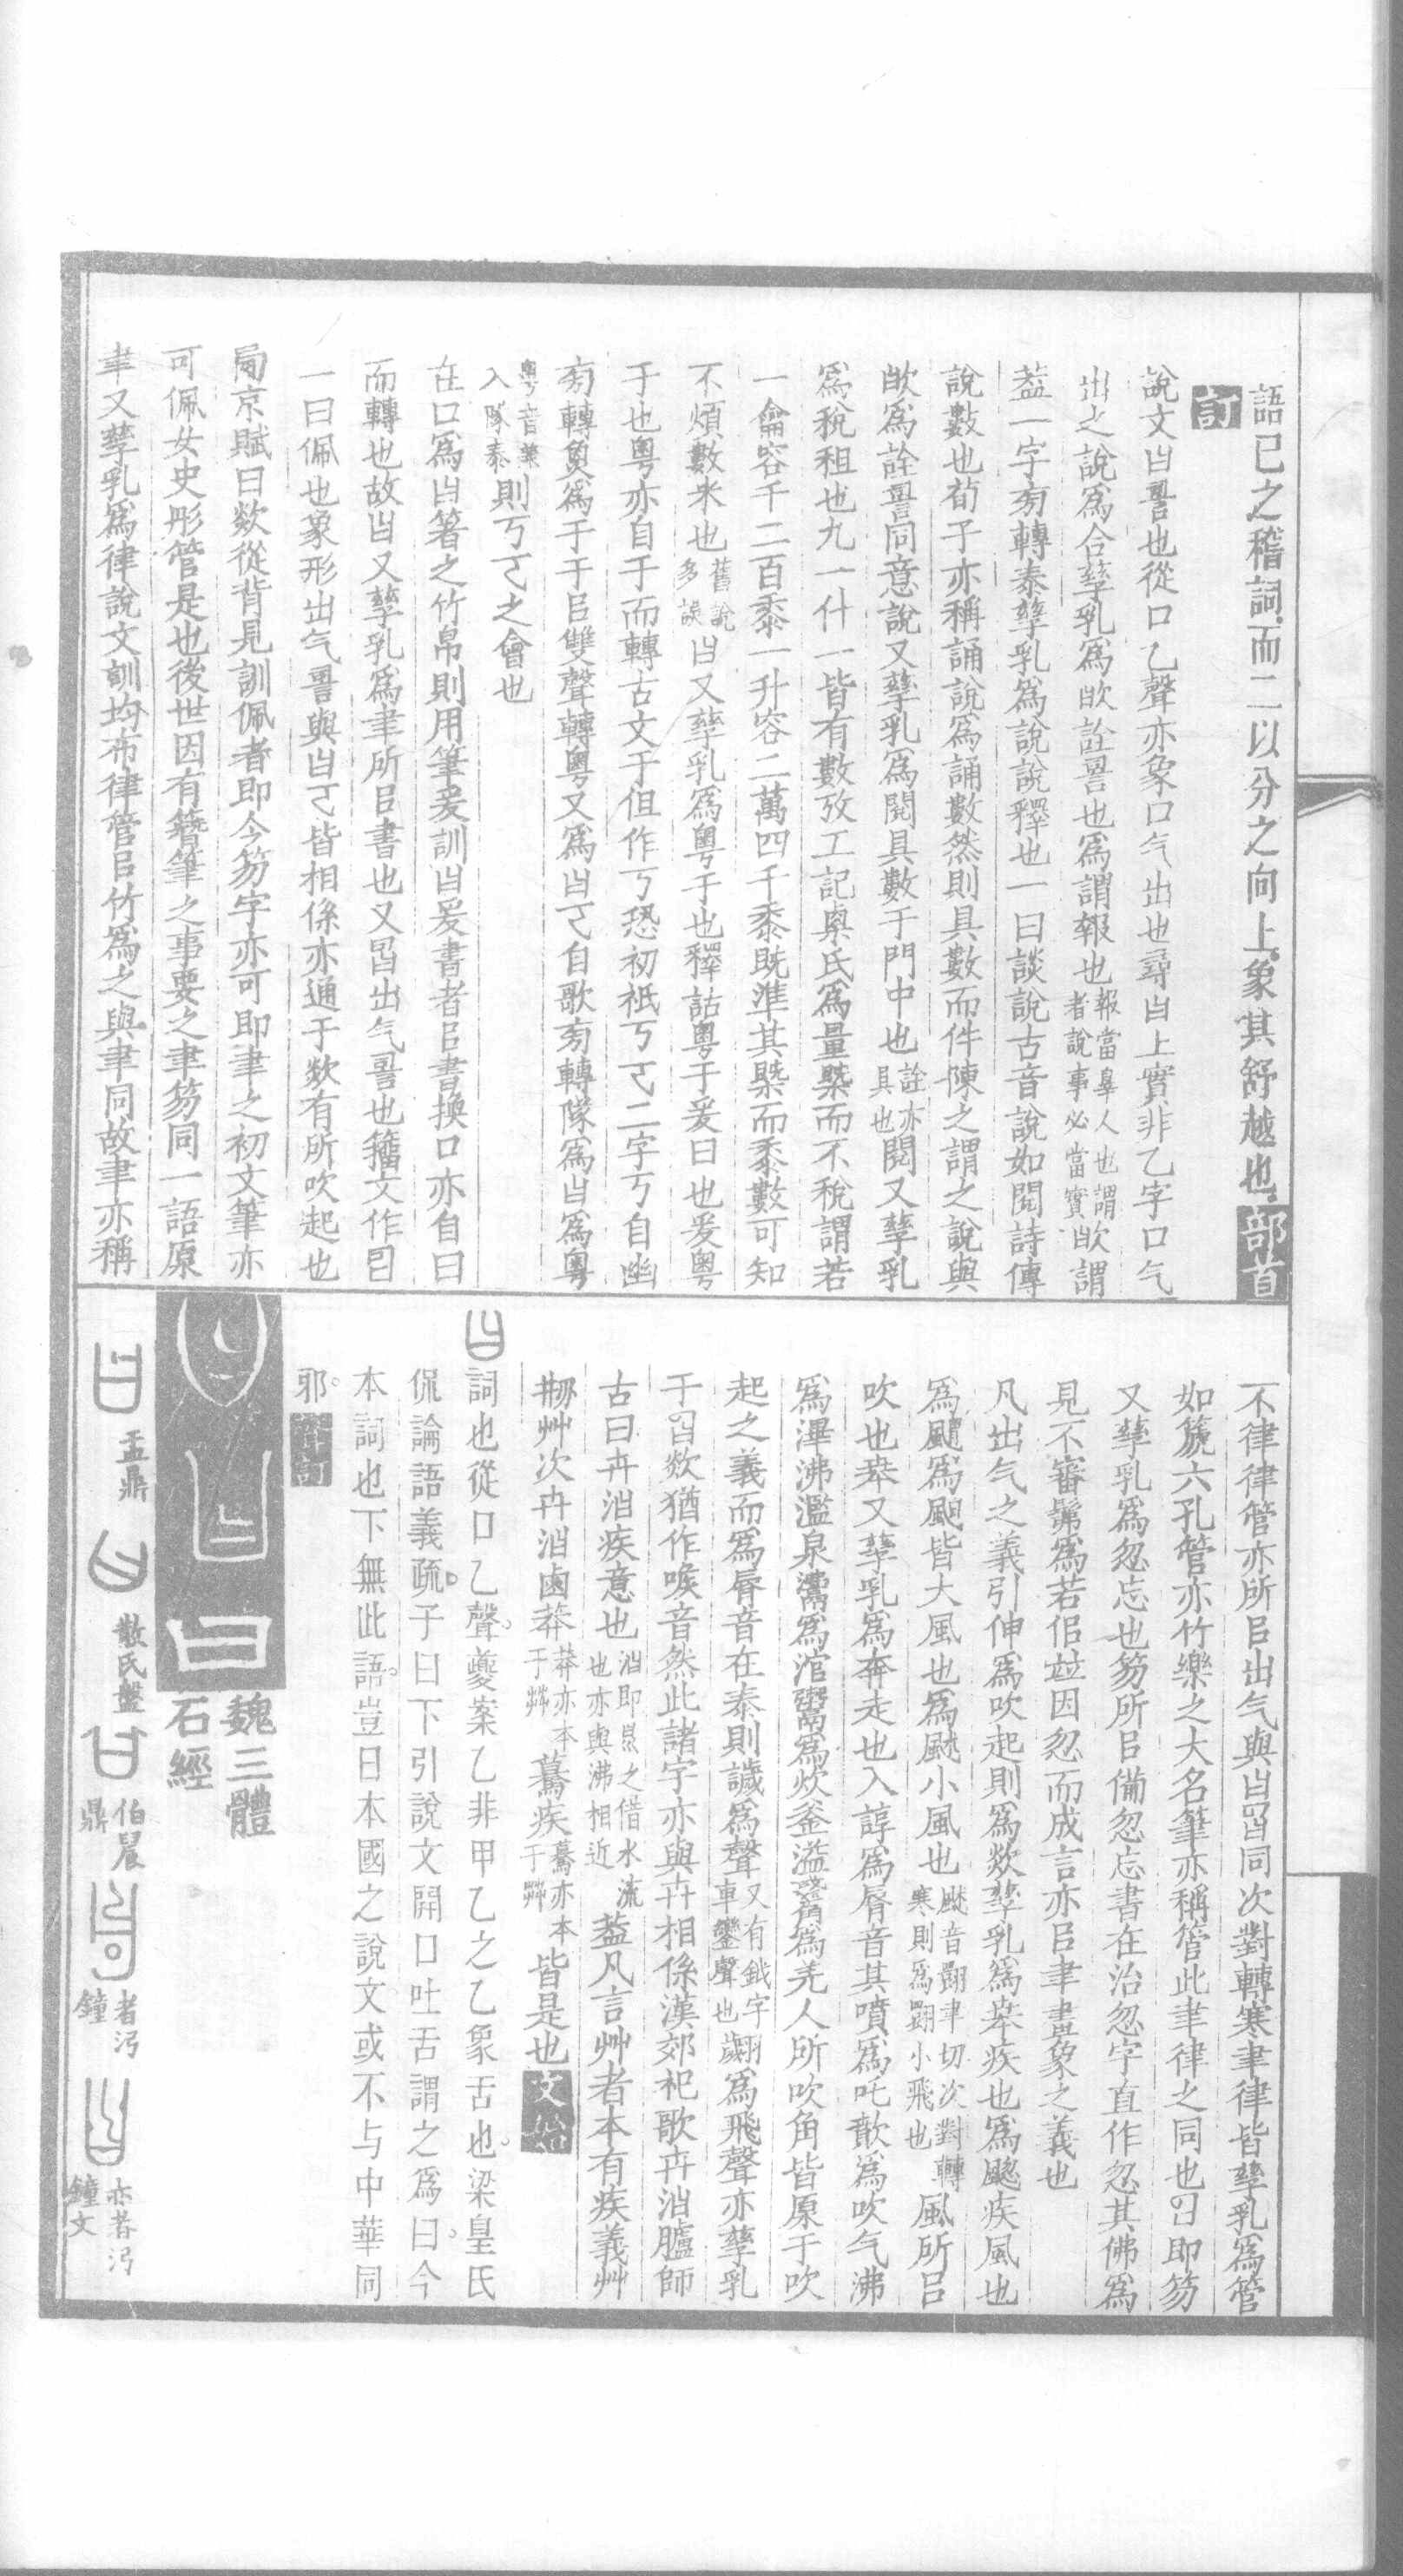 語已之稽詞而二以分之向上象其舒越也部首
訂
說文曰䛐也從口乙聲亦象口气出也尋曰上實非乙字口气
出之說爲合孳乳爲欥詮䛐也爲謂報也報當辠人也謂者說事必當實欥謂
葢一字㫄轉泰孳乳爲說說釋也一曰談說古音說如閱詩傳
說數也荀子亦稱誦說爲誦數然則具數而件陳之謂之說與
欥爲詮䛐同意說又孳乳爲閱具數于門中也詮亦具也閱又孳乳
爲稅租也九一什一皆有數攷工記㮚氏爲量槩而不稅謂若
一龠容千二百黍一升容二萬四千黍旣準其槩而黍數可知
不煩數米也舊說多誤曰又孳乳爲粵于也釋詁粵于爰曰也爰粵
于也粵亦自于而轉古文于但作丂恐初祇丂𠀀二字丂自幽
㫄轉魚爲于于㠯雙聲轉粵又爲曰𠀀自歌㫄轉隊爲曰爲粵
粵音兼入隊泰則丂𠀀之會也
在口爲曰箸之竹帛則用筆爰訓曰爰書者㠯書換口亦自曰
而轉也故曰又孳乳爲聿所㠯書也又曶出气䛐也籒文作𠯳
一曰佩也象形出气䛐與曰𠀀皆相係亦通于欻有所吹起也
𠔃京賦曰欻從背見訓佩者卽今笏字亦可卽聿之初文筆亦
可佩女史彤管是也後世因有簪筆之事要之聿笏同一語原
聿又孳乳爲律說文訓均布律管㠯竹爲之與聿同故聿亦稱
不律律管亦所㠯出气與曰曶同次對轉寒聿律皆孳乳爲管
如篪六孔管亦竹樂之大名筆亦稱管此聿律之同也曶卽笏
又孳乳爲忽忘也笏所㠯備忽忘書在治忽字直作忽其佛爲
見不審髴爲若佀竝因忽而成言亦㠯聿畫象之義也
凡出气之義引伸爲吹起則爲欻孳乳爲𠦪疾也爲䬍疾風也
爲䬝爲䬛皆大風也爲颫小風也颫音翾聿切次對轉寒則爲翾小飛也風所㠯
吹也𠦪又孳乳爲奔走也入諄爲脣音其噴爲吒歕爲吹气沸
爲滭沸濫泉灊爲涫鬻爲炊釜溢𧤏爲羌人所吹角皆原于吹
起之義而爲脣音在泰則鐬爲聲又有鉞字車鑾聲也翽爲飛聲亦孳乳
于曶欻猶作喉音然此諸字亦與卉相係漢郊祀歌卉汩臚師
古曰卉汩疾意也汩卽㫚之借水流也亦與沸相近葢凡言艸者本有疾義艸
㓞艸次卉汩鹵莽莽亦本于茻驀疾驀亦本于茻皆是也文始
詞也從口乙聲。夔案乙非甲乙之乙象舌也。梁皇氏
侃論語義疏。子曰下引說文開口吐舌謂之爲曰。今
本詞也下無此語。豈日本國之說文或不与中華同
邪。夔訂
曰
魏三體石經
盂鼎
散氏盤
伯晨鼎
者沪鐘
亦者沪鐘文